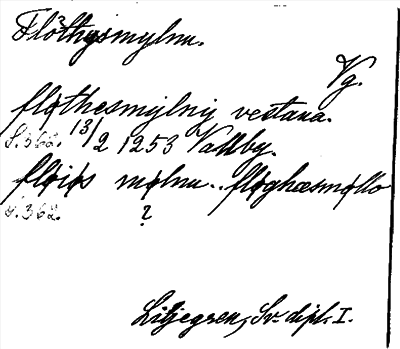 Fløthysmylnu.
Vg.
fløthesmylnÿ vestana.
S. 362. 13/2 1253 Vallby.
fløiøs mølnu.. fløghæsmøllo
S. 362. ?
Liljegren, Sv. dipl. I.